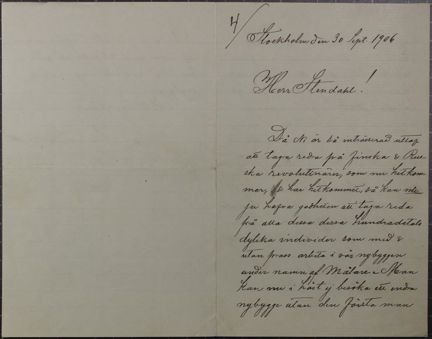 4/
Stockholm den 30 Sept. 1906
Herr Stendahl!
Då Ni är så intresserad utaf
att taga reda på finska & Rys-
ska revolutionärer, som nu hitkom-
mer, & har hitkommet, så kan
ju hafva godheten att taga reda
på alla dessa dessa hundradetals
dylika individer som med &
utan pass arbeta i vår nybyggen
under namn af Målare. Man
kan nu i höst ej besöka ett enda
nybygge utan den första man